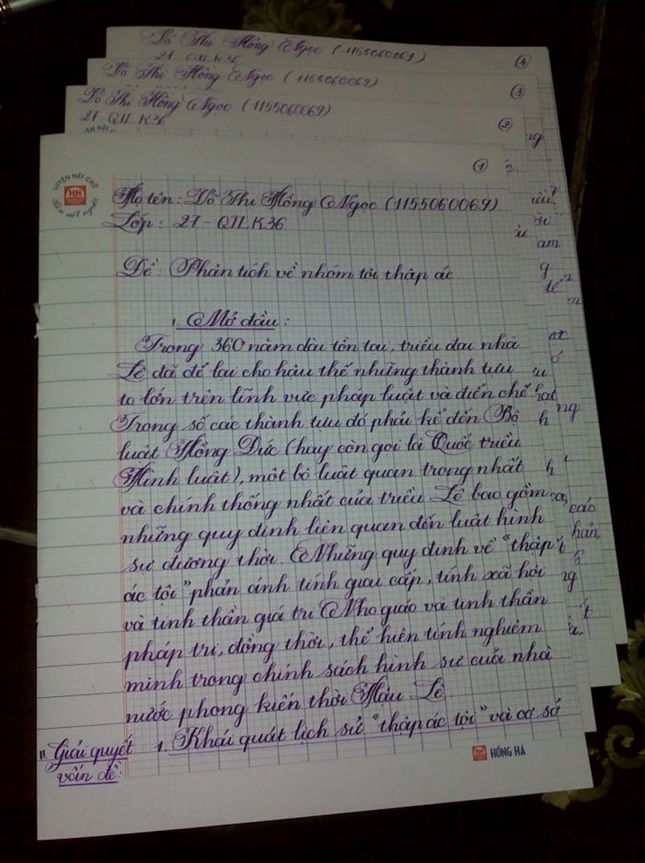 Võ Thị Hồng Ngọc (1155060069)
4
21 - QTL K36
Võ Thị Hồng Ngọc (1155060069)
3
Võ Thị Hồng Ngọc (1155060069)
2
21 - QTL K36
1
LUYỆN NÉT CHỮ
RÈN NẾT NGƯỜI
HH
Họ tên: Võ Thị Hồng Ngọc (1155060069)
Lớp: 21 - QTL K36
Đề: Phân tích về nhóm tội thập ác
I. Mở đầu:
Trong 360 năm dài tồn tại, triều đại nhà
Lê đã để lại cho hậu thế những thành tựu
to lớn trên lĩnh vực pháp luật và điển chế
Trong số các thành tựu đó phải kể đến Bộ
luật Hồng Đức (hay còn gọi là Quốc triều
Hình luật), một bộ luật quan trọng nhất
và chính thống nhất của triều Lê bao gồm
những quy định liên quan đến luật hình
sự đương thời. Những quy định về "thập
ác tội" phản ánh tính giai cấp, tính xã hội
và tinh thần giá trị Nho giáo và tinh thần
pháp trị, đồng thời, thể hiện tính nghiêm
minh trong chính sách hình sự của nhà
nước phong kiến thời Hậu Lê.
II Giải quyết 1. Khái quát lịch sử "thập ác tội" và cơ sở
vấn đề:
HH HỒNG HÀ